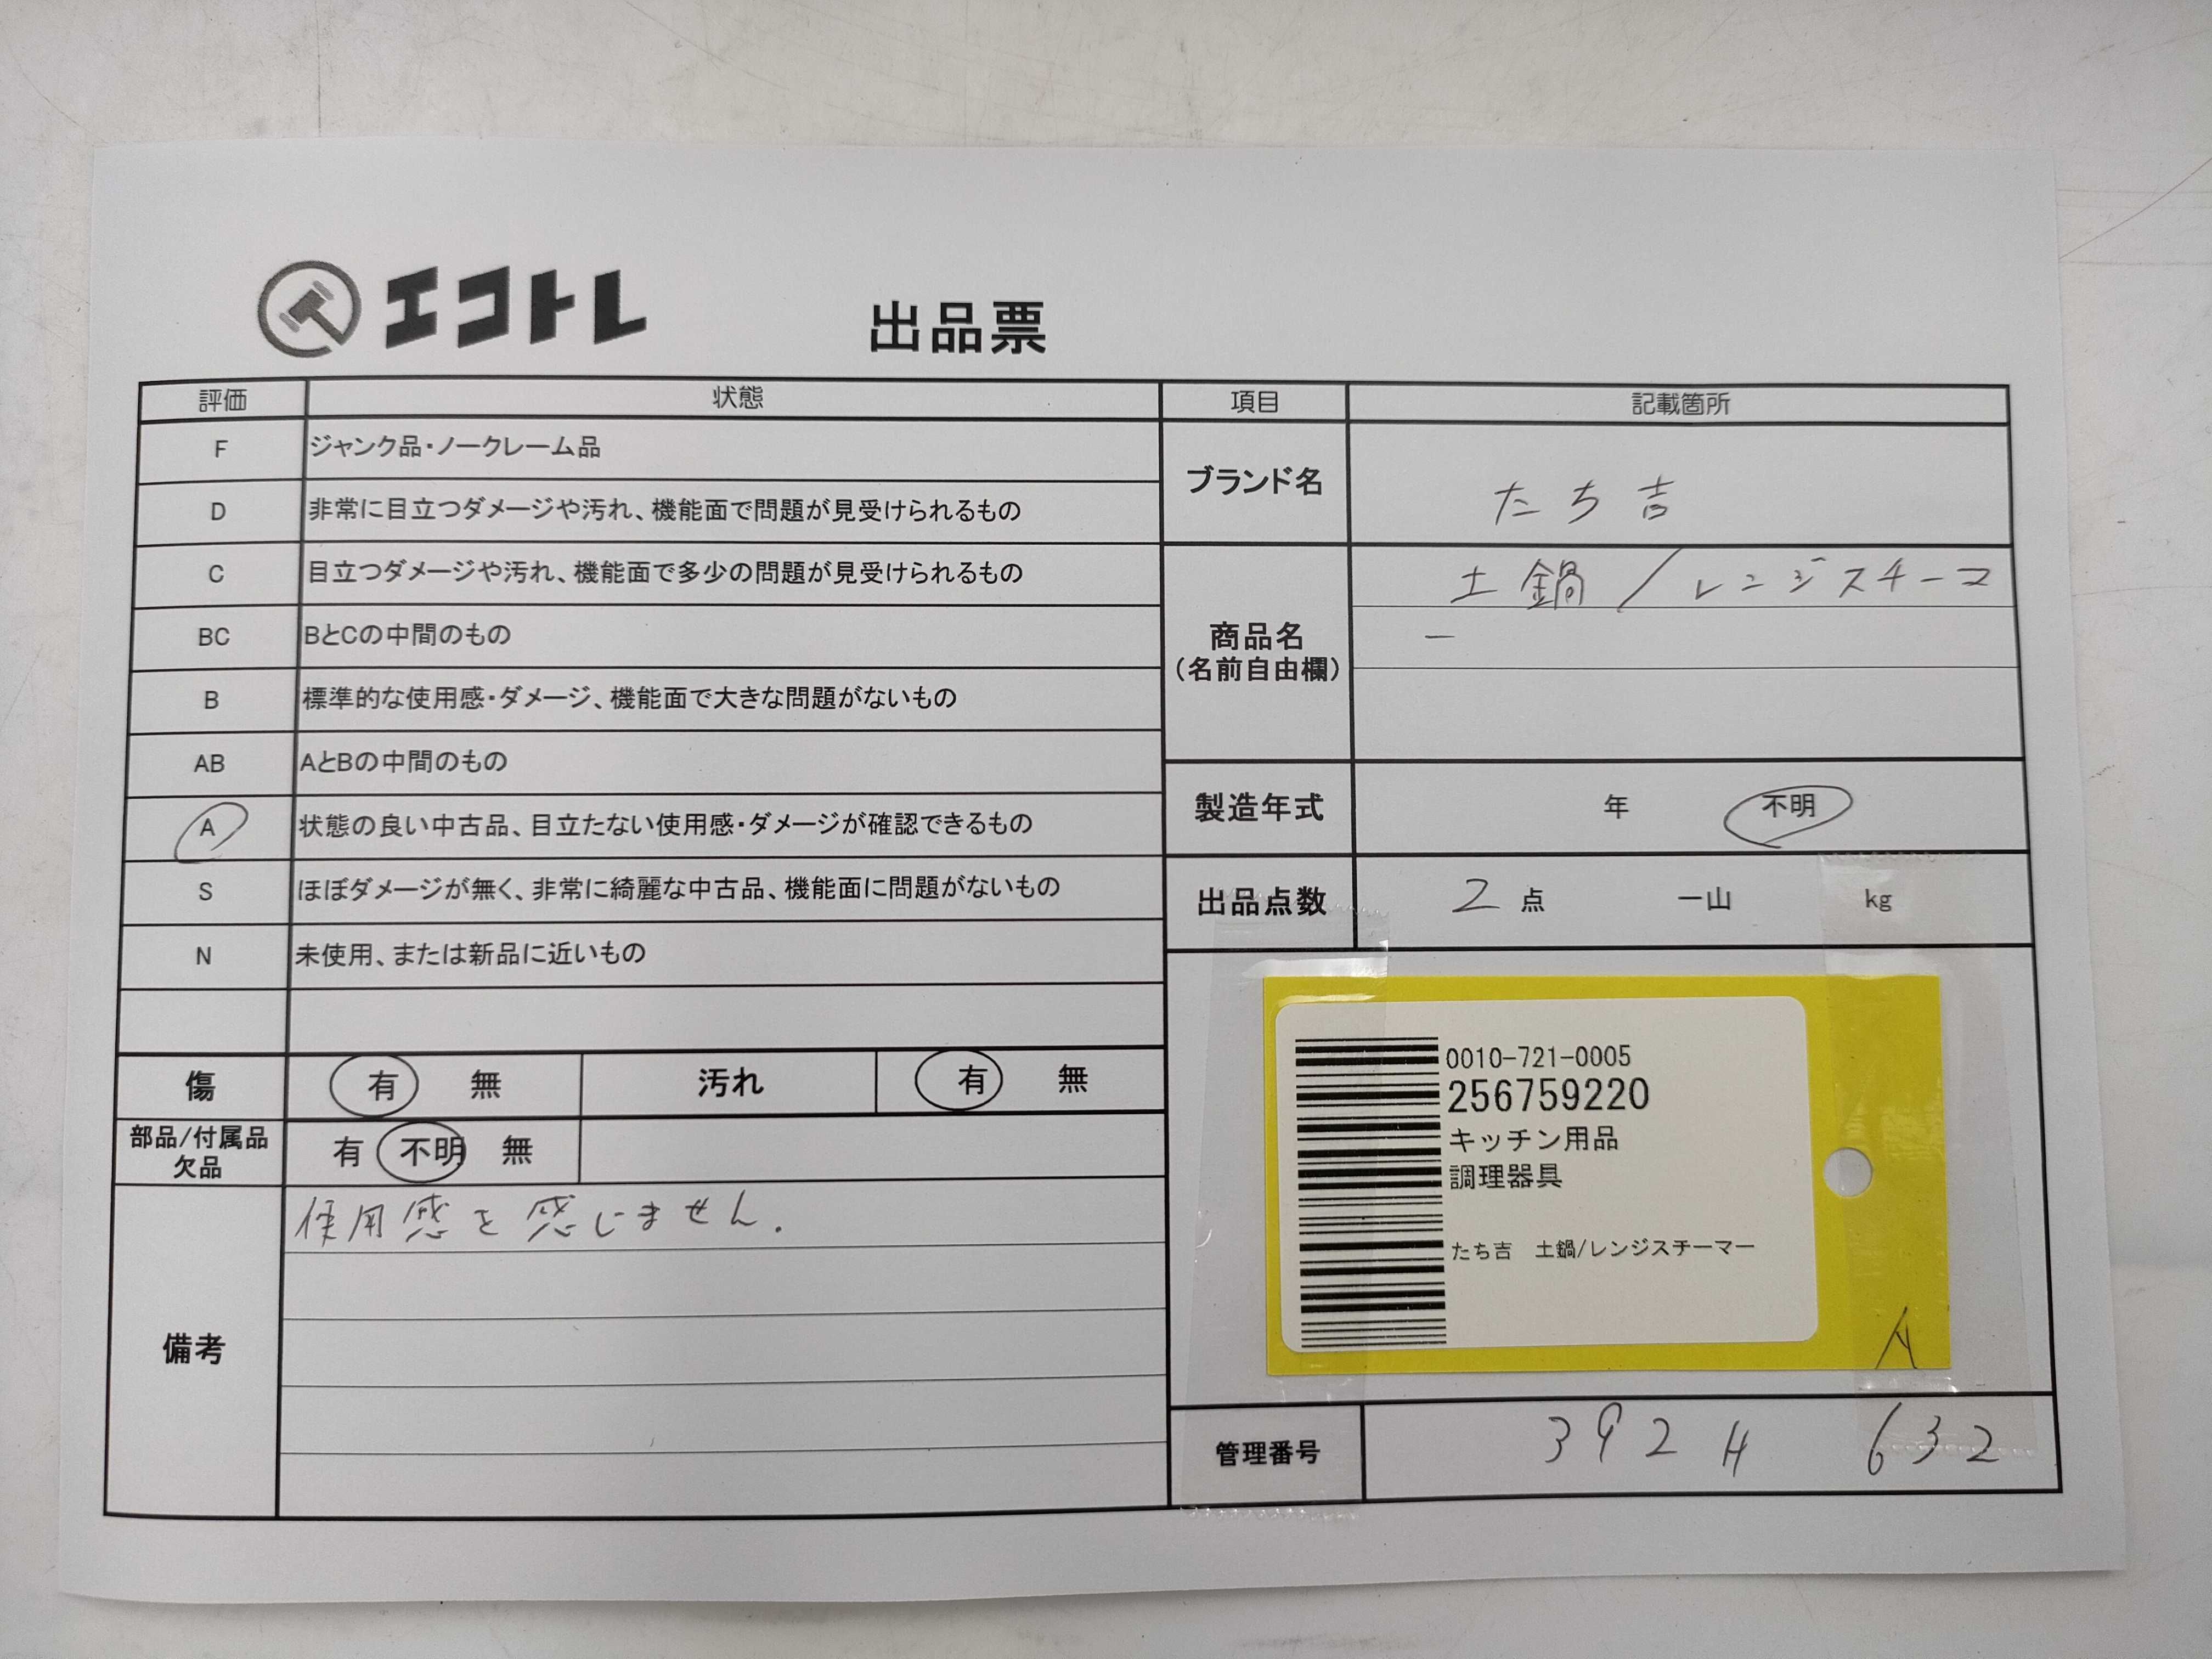 エコトレ
出品票
評価 状態
F ジャンク品・ノークレーム品
D 非常に目立つダメージや汚れ、機能面で問題が見受けられるもの
C 目立つダメージや汚れ、機能面で多少の問題が見受けられるもの
BC BとCの中間のもの
B 標準的な使用感・ダメージ、機能面で大きな問題がないもの
AB AとBの中間のもの
A 状態の良い中古品、目立たない使用感・ダメージが確認できるもの
S ほぼダメージが無く、非常に綺麗な中古品、機能面に問題がないもの
N 未使用、または新品に近いもの
傷 有 無 汚れ 有 無
部品/付属品
欠品
有 不明 無
備考
使用感を感じません.
項目 記載箇所
ブランド名 たち吉
商品名
(名前自由欄)
土鍋/レンジスチーマ
ー
製造年式 年 不明
出品点数 2 点 一山 kg
0010-721-0005
256759220
キッチン用品
調理器具
たち吉 土鍋/レンジスチーマー
A
管理番号 392H 632